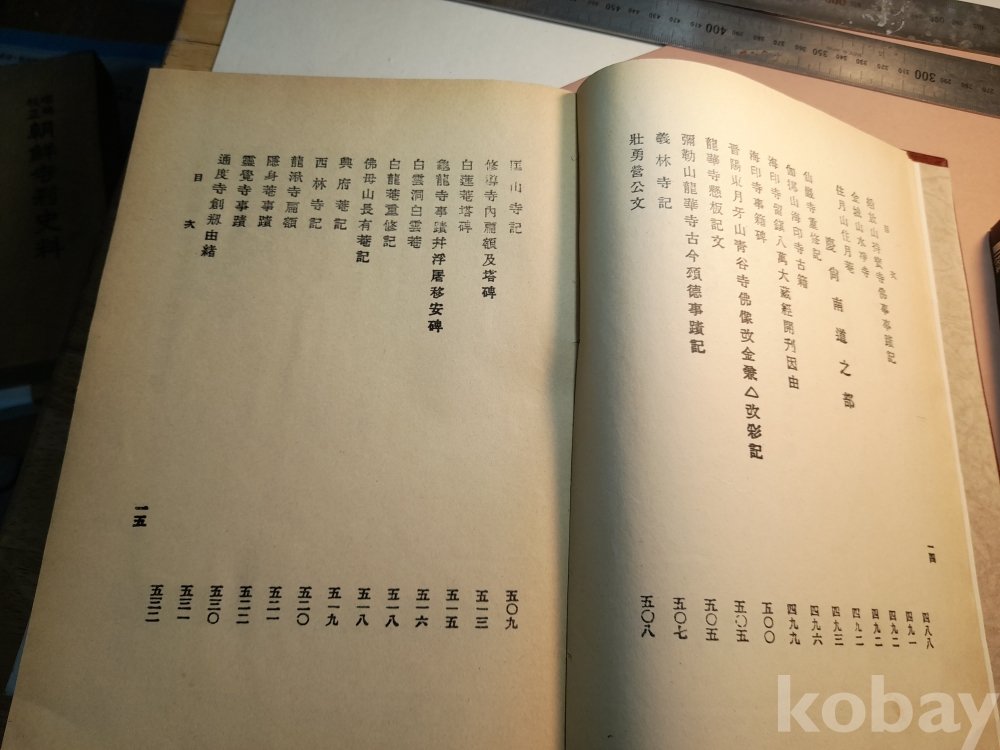 目 次
慶尙南道之部
仙巖寺重修記
伽揶山海印寺古籍
海印寺留鎭八萬大藏經開刊因由
海印寺事籍碑
晋陽東月牙山靑谷寺佛像改金兼△改彩記
龍華寺懸板記文
彌勒山龍華寺古今頌德事蹟記
義林寺記
壯勇營公文
一四
四八八
四九一
四九二
四九二
四九二
四九三
四九六
四九九
五〇〇
五〇五
五〇五
五〇七
五〇八
匡山寺記
修導寺內扁額及塔碑
白蓮菴塔碑
龜龍寺事蹟幷浮屠移安碑
白雲洞白雲菴
白龍菴重修記
佛母山長有菴記
興府菴記
西林寺記
龍湫寺扁額
隱身菴事蹟
靈覺寺事蹟
通度寺創刱由緖
目 次
一五
五〇九
五一三
五一五
五一六
五一八
五一八
五一九
五二〇
五二一
五二二
五三〇
五三一
五三二
kobay
400
350
300